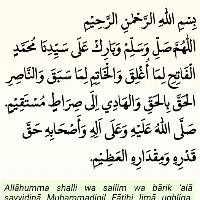 بِسْمِ اللهِ الرَّحْمٰنِ الرَّحِيْمِ
اَللّٰهُمَّ صَلِّ وَسَلِّمْ وَبَارِكْ عَلَى سَيِّدِنَا مُحَمَّدٍ
الْفَاتِحِ لِمَا أُغْلِقَ وَالْخَاتِمِ لِمَا سَبَقَ وَالنَّاصِرِ
الْحَقَّ بِالْحَقِّ وَالْهَادِي إِلَى صِرَاطٍ مُسْتَقِيْمٍ.
صَلَّى اللهُ عَلَيْهِ وَعَلَى آلِهِ وَأَصْحَابِهِ حَقَّ
قَدْرِهِ وَمِقْدَارِهِ الْعَظِيْمِ.
Allâhumma shalli wa sallim wa bârik 'alâ
sayyidinâ Muhammadinil Fâtihi limâ ughliqa,